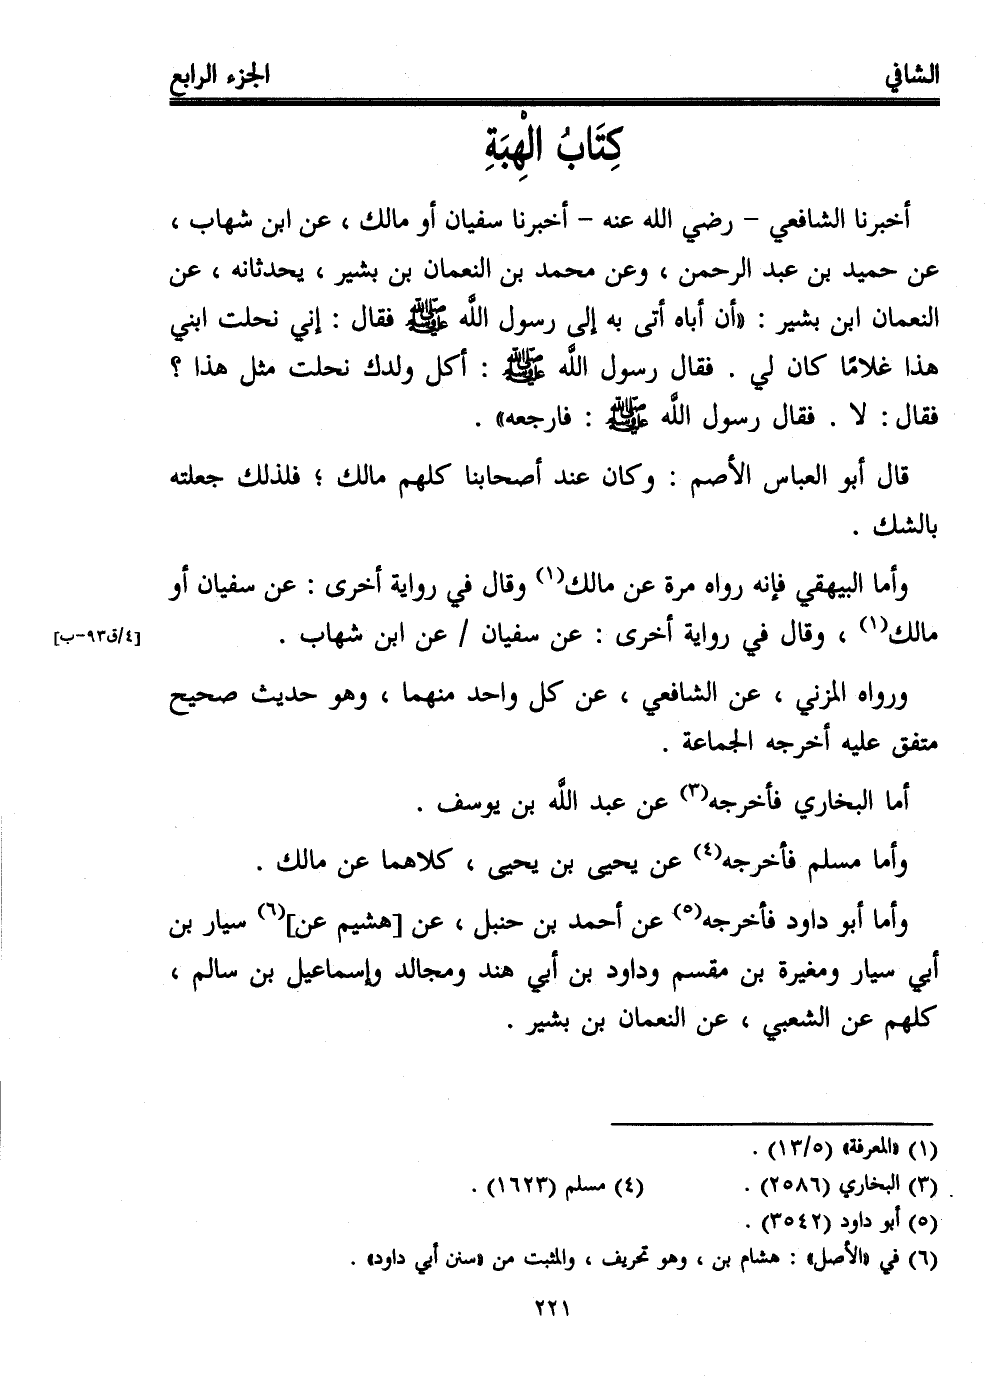 الشافي
الجزء الرابع
كِتَابُ الْهِبَةِ
أخبرنا الشافعي – رضي الله عنه – أخبرنا سفيان أو مالك ، عن ابن شهاب ،
عن حميد بن عبد الرحمن ، وعن محمد بن النعمان بن بشير ، يحدثانه ، عن
النعمان ابن بشير : «أن أباه أتى به إلى رسول اللَّه ﷺ فقال : إني نحلت ابني
هذا غلامًا كان لي . فقال رسول اللَّه ﷺ : أكل ولدك نحلت مثل هذا ؟
فقال : لا . فقال رسول اللَّه ﷺ : فارجعه» .
قال أبو العباس الأصم : وكان عند أصحابنا كلهم مالك ؛ فلذلك جعلته
بالشك .
وأما البيهقي فإنه رواه مرة عن مالك(١) وقال في رواية أخرى : عن سفيان أو
مالك(١) ، وقال في رواية أخرى : عن سفيان / عن ابن شهاب .
[٤/ق٩٣-ب]
ورواه المزني ، عن الشافعي ، عن كل واحد منهما ، وهو حديث صحيح
متفق عليه أخرجه الجماعة .
أما البخاري فأخرجه(٣) عن عبد اللَّه بن يوسف .
وأما مسلم فأخرجه(٤) عن يحيى بن يحيى ، كلاهما عن مالك .
وأما أبو داود فأخرجه(٥) عن أحمد بن حنبل ، عن [هشيم عن](٦) سيار بن
أبي سيار ومغيرة بن مقسم وداود بن أبي هند ومجالد وإسماعيل بن سالم ،
كلهم عن الشعبي ، عن النعمان بن بشير .
(١) «المعرفة» (١٣/٥) .
(٣) البخاري (٢٥٨٦) .
(٤) مسلم (١٦٢٣) .
(٥) أبو داود (٣٥٤٢) .
(٦) في «الأصل» : هشام بن ، وهو تحريف ، والمثبت من «سنن أبي داود» .
٢٢١